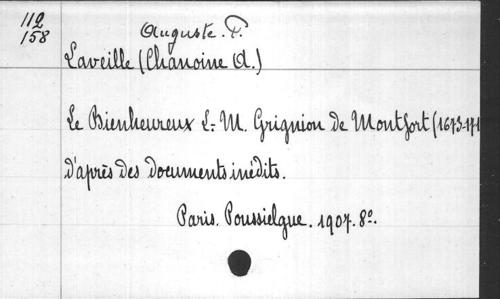 112
158
Auguste. P.
Laveille (Chanoine A.)
Le Bienheureux L.-M. Grignion de Montfort (1673-171
d'après des documents inédits.
Paris. Poussielgue. 1907. 8º.